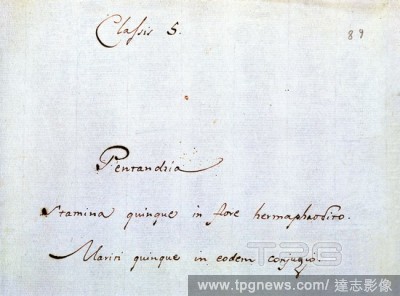 Classis 5.
89
Pentandria
Stamina quinque in flore hermaphrodito.
Mariti quinque in eodem conjugio.
TPG
www.tpgnews.com/達志影像